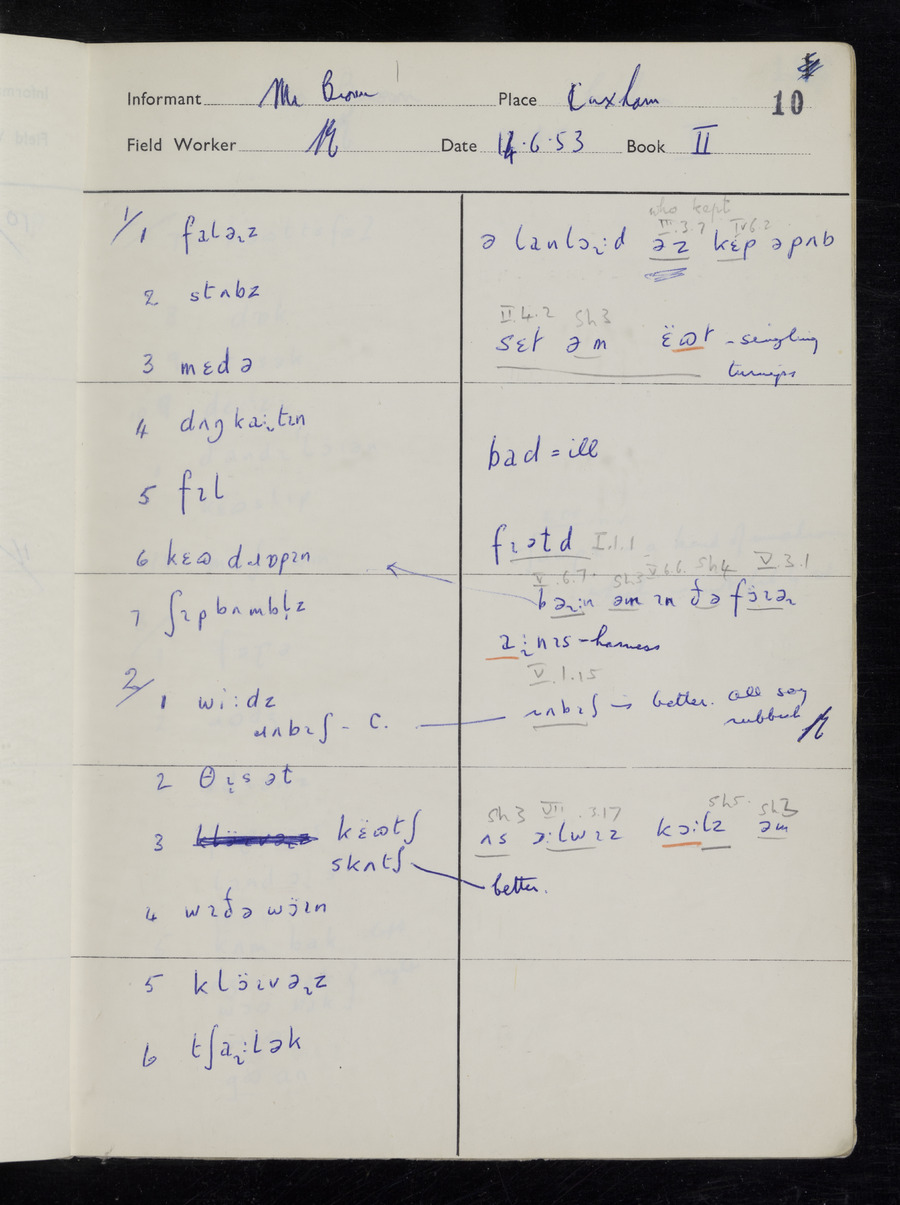 Informant Mr Brown Place Cuxham 10
Field Worker Date 14.6.53 Book II
1/ 1 faləɻz
2 stʌbz
3 mɛdə
4 dʌŋ kaɻ:tɪn
5 fɪl
6 kɛɷ dɹɒpɪn
7 ʃɪpbʌmbl̩z
2/ 1 wi:dz
ɹʌbɪʃ - C.
2 θɪsət
3 këɷtʃ
skʌtʃ
4 wɪðə wɔ̈ɪn
5 klɔ̈ɪvəɻz
6 tʃaɻ:lək
who kept
III.3.7 IV 6.2
ə lanləɻ:d əz kɛp əpʌb
II.4.2 Sh3
sɛt əm ɛ̈ɷt - singling
turnips
bad = ill
fɪətd I.1.1
V.6.7. Sh3 V 6.6. Sh4 V.3.1
bəɻ:n əm ɪn ðə fɔ̈ɪəɻ
aɻ:nɪs - harness
V.1.15
ɹʌbɪʃ is better. all say
rubbish
Sh3 VII.3.17 Sh5. Sh3
ʌs ɔ:lwɪz kɔ:lz əm
better.